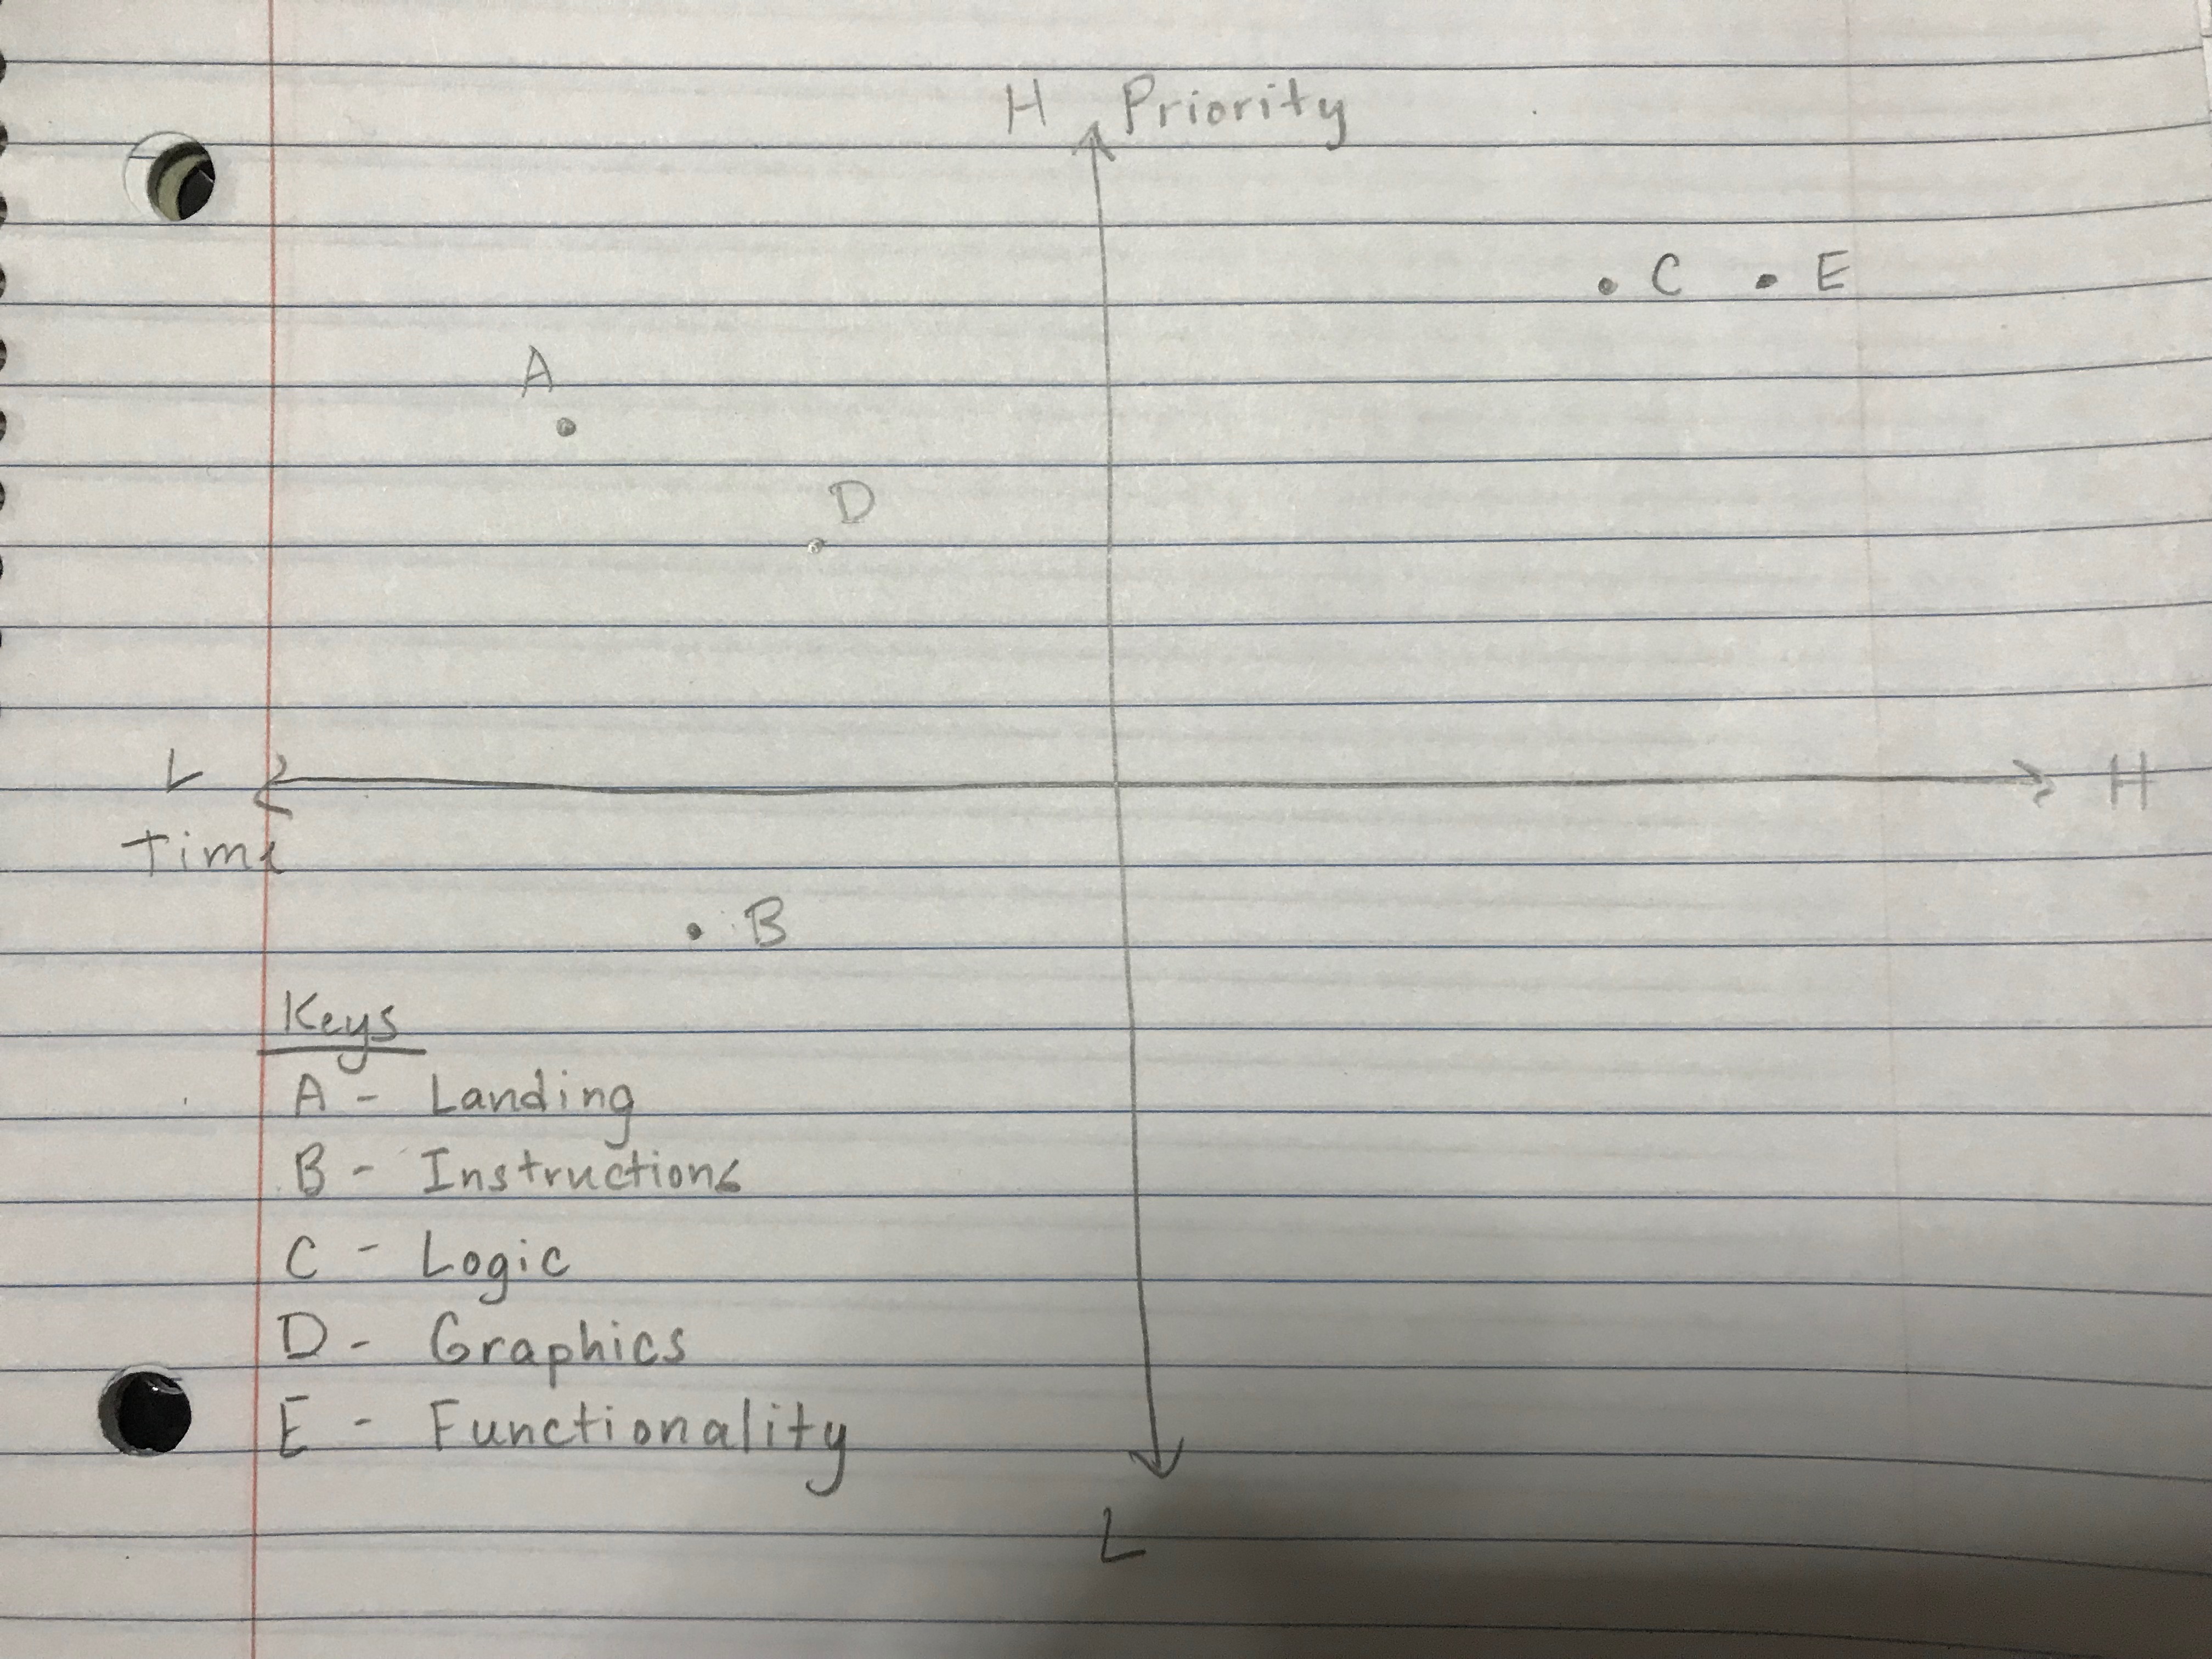 H Priority
C E
A
D
L H
Time
B
Keys
A - Landing
B - Instructions
C - Logic
D - Graphics
E - Functionality
L